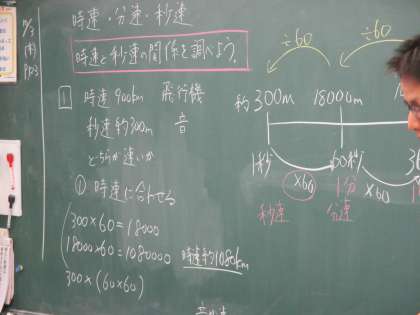 時速・分速・秒速
時速と秒速の関係を調べよう。
1 時速900km 飛行機
秒速約300m 音
どちらが速いか
① 時速に合わせる
300×60=18000
18000×60=1080000 時速約1080km
300×(60×60)
÷60 ÷60
約300m 18000m
1秒 60秒 1分
×60 ×60
秒速 分速